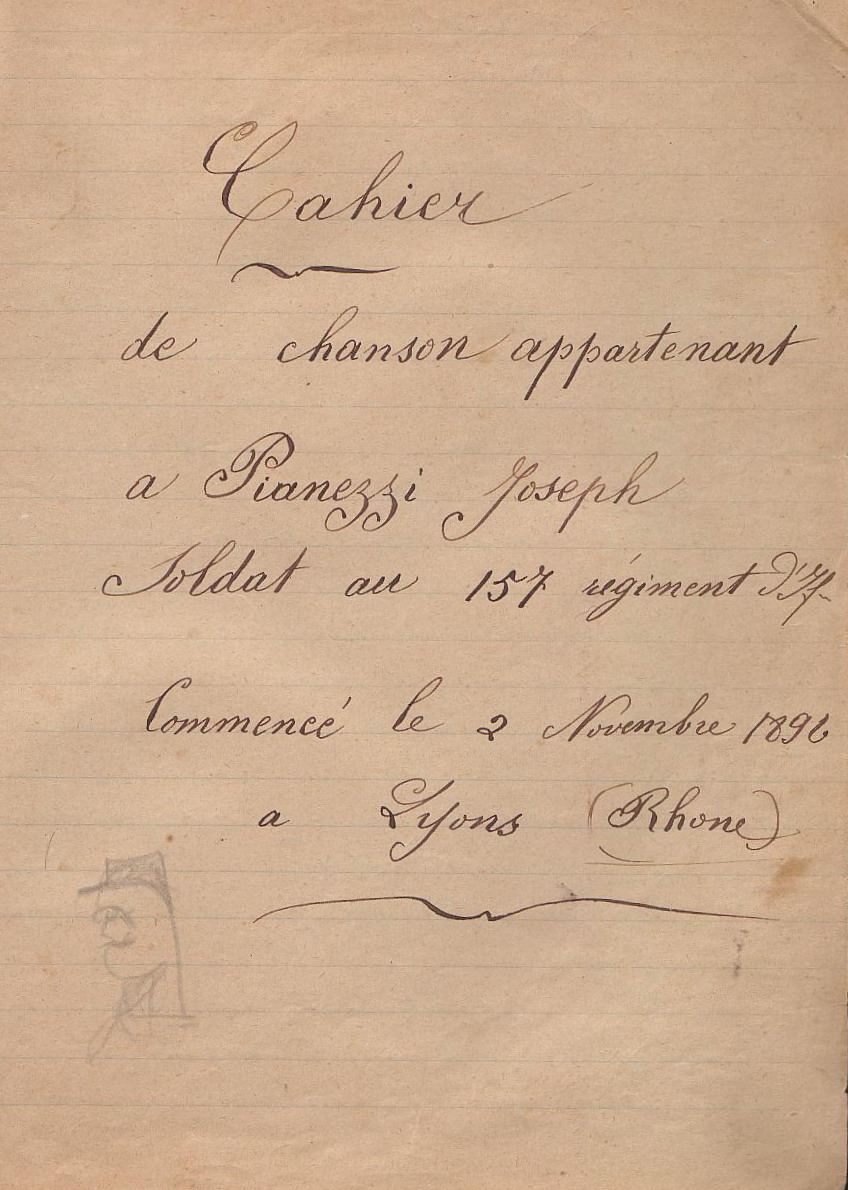 Cahier
de chanson appartenant
a Pianezzi Joseph
Soldat au 157 régiment d'If
Commencé le 2 Novembre
a Lyons (Rhone)